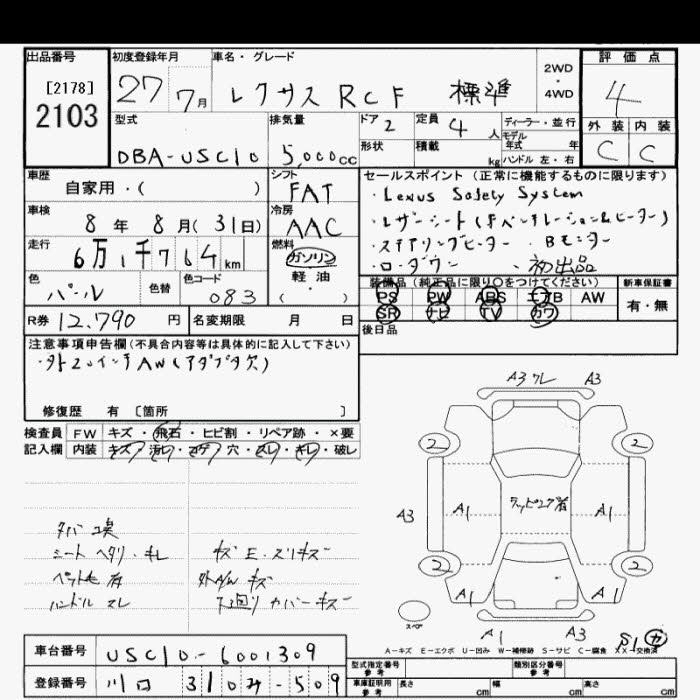 出品番号
[2178]
2103
初度登録年月
27 7月
車名・グレード
レクサス RCF 標準
2WD
・
4WD
評価点
4
外装 内装
C C
型式
DBA-USC10
排気量
5,000cc
ドア 2
定員 4人
形状
積載 kg
ディーラー・並行
モデル
年式 年
ハンドル 左・右
車歴
自家用・( )
シフト
FAT
車検
8年 8月(31日)
冷房
AAC
走行
6万1千764km
燃料
ガソリン
軽油
・
( )
色
パール
色替
色コード
083
セールスポイント(正常に機能するものに限ります)
・Lexus Safety System
・レザーシート(F ベンチレーション&ヒーター)
・ステアリングヒーター ・Bモニター
・ローダウン ・初出品
装備品(純正品に限り○をつけてください)
PS PW ABS エアB AW
SR ナビ TV カワ
新車保証書
有・無
後日品
R券 12,790円
名変期限 月 日
注意事項申告欄(不具合内容等は具体的に記入して下さい)
・外20インチAW(アダプタ欠)
修復歴 有 [箇所 ]
検査員 FW キズ・飛石・ヒビ割・リペア跡・×要
記入欄 内装 キズ・汚レ・コゲ・穴・スレ・キレ・破レ
タバコ臭
シート ヘタリ・キレ
ペット毛 有
ハンドル スレ
キズ E・スリキズ
外A/W キズ
下回り カバーキズ
A3 ワレ A3
2 2
A3 A1 ラッピング有 A1 A3
2 2
A1 A1
スペア
A1 A3 S1 カ
A-キズ E-エクボ U-凹み W-補修跡 S-サビ C-腐食 XX-交換済
車台番号 USC10-6001309
登録番号 川口 310み-509
型式指定番号
参考
類別区分番号
参考
車庫証明用
参考
長さ cm 幅 cm 高さ cm